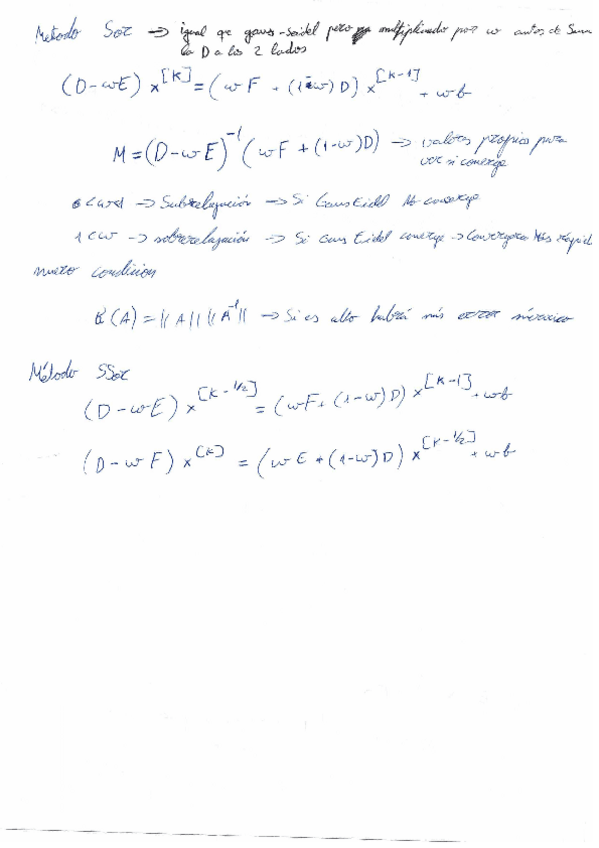 Metodo Sor → igual que gauss-seidel pero multiplicado por w antes de Sum
la D a los 2 lados
(D-wE) x^[K] = (wF + (1-w)D) x^[K-1] + wb
M = (D-wE)^-1 (wF + (1-w)D) → valores propios para
ver si converge
0<w<1 → Subrelajación → Si Gaus Eidel No converge
1<w → sobrerelajación → Si Gaus Eidel converge → Convergera Más rápid
numero condicion
K(A) = ||A|| ||A^-1|| → Si es alto habrá más error númerico
Método SSor
(D-wE) x^[K-1/2] = (wF + (1-w)D) x^[K-1] + wb
(D-wF) x^[K] = (wE + (1-w)D) x^[K-1/2] + wb